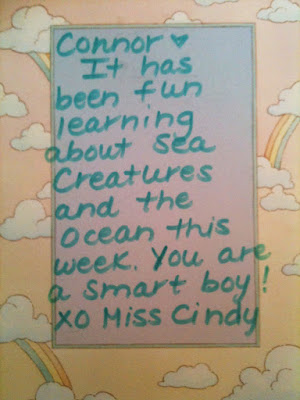 Connor ♥
It has
been fun
learning
about Sea
Creatures
and the
Ocean this
week. You are
a smart boy!
XO Miss Cindy